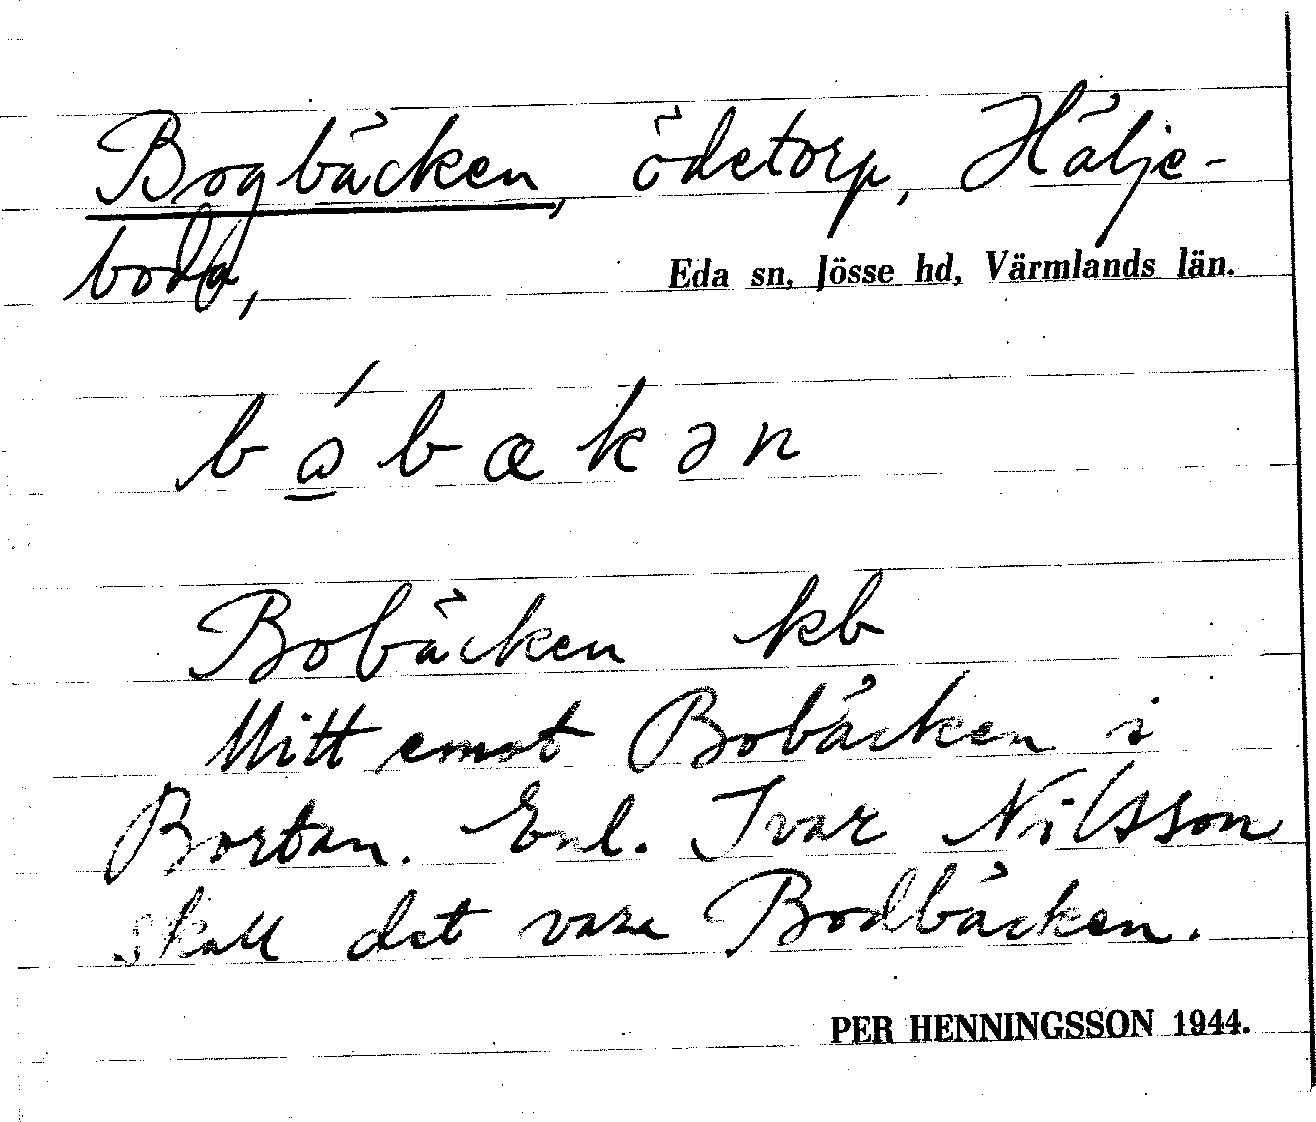 Bogbäcken, ödetorp, Hälje-
boda,
Eda sn, Jösse hd, Värmlands län.
bǻbækən
Bobäcken kb
Mitt emot Bobäcken i
Bortan. Enl. Ivar Nilsson
skall det vara Bodbäcken.
PER HENNINGSSON 1944.